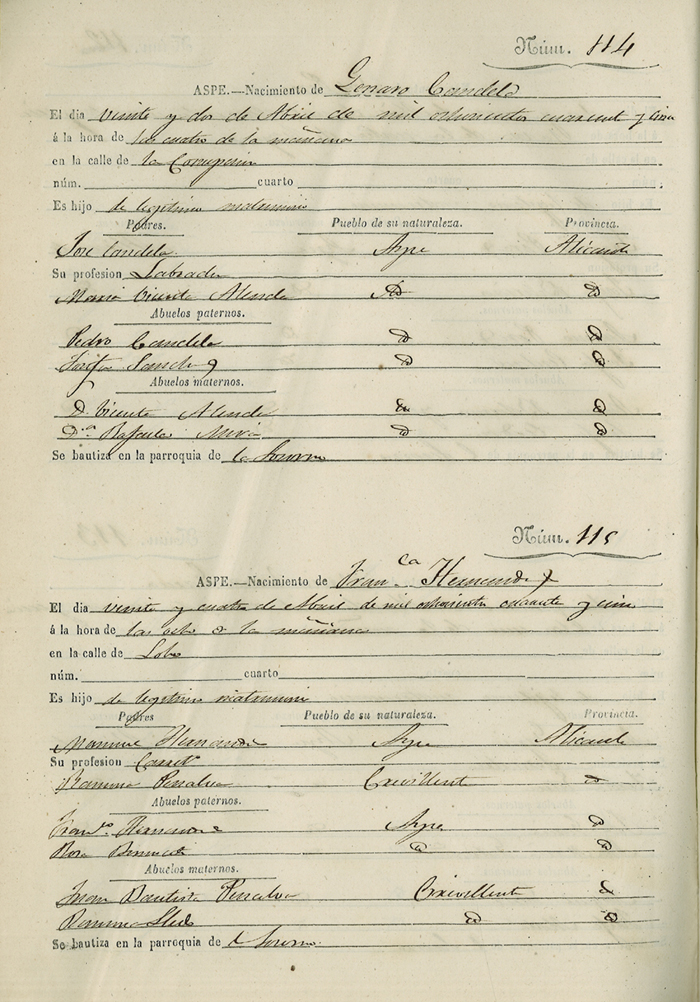 Núm. 114
ASPE.—Nacimiento de Genaro Candela
El dia veinte y dos de Abril de mil ochocientos cuarenta y cinco
á la hora de las cuatro de la mañana
en la calle de la
núm. cuarto
Es hijo de legitimo matrimonio
Padres. Pueblo de su naturaleza. Provincia.
Jose Candela Aspe Alicante
Su profesion Labrador
Maria Vicenta Alenda Yd Yd
Abuelos paternos.
Pedro Candela Yd Yd
Josefa Sanchez Yd Yd
Abuelos maternos.
D. Vicente Alenda Yd Yd
D.ª Rafaela Mira Yd Yd
Se bautiza en la parroquia de
Núm. 115
ASPE.—Nacimiento de Fran.ca Hernandez
El dia veinte y cuatro de Abril de mil ochocientos cuarenta y cinco
á la hora de las ocho de la mañana
en la calle de Lobo
núm. cuarto
Es hijo de legitimo matrimonio
Padres Pueblo de su naturaleza. Provincia.
Hernandez Aspe Alicante
Su profesion
Ramona Penalva Crevillente Yd
Abuelos paternos.
Fran.co Hernandez Aspe Yd
Rosa Yd Yd
Abuelos maternos.
Juan Bautista Penalva Crevillente Yd
Ramona Lledo Yd Yd
Se bautiza en la parroquia de